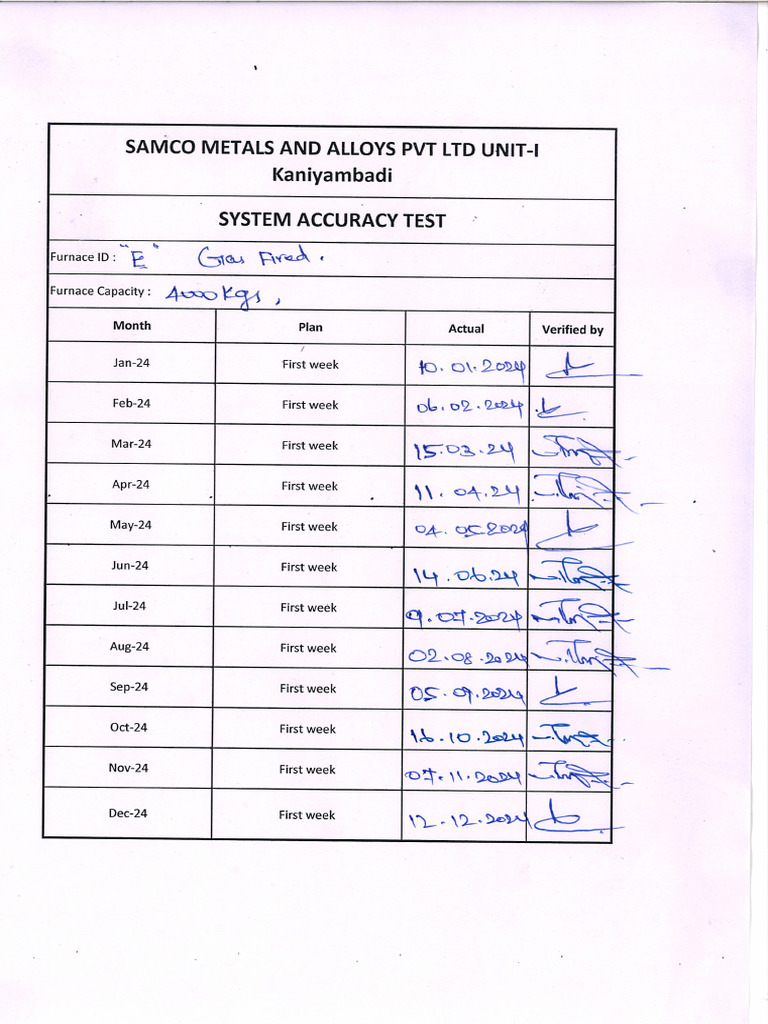 SAMCO METALS AND ALLOYS PVT LTD UNIT-I
Kaniyambadi
SYSTEM ACCURACY TEST
Furnace ID : "E" Gas Fired.
Furnace Capacity : 4000 Kgs,
Month Plan Actual Verified by
Jan-24 First week 10.01.2024
Feb-24 First week 06.02.2024
Mar-24 First week 15.03.24
Apr-24 First week 11.04.24
May-24 First week 04.05.2024
Jun-24 First week 14.06.24
Jul-24 First week 9.07.2024
Aug-24 First week 02.08.2024
Sep-24 First week 05.09.2024
Oct-24 First week 16.10.2024
Nov-24 First week 07.11.2024
Dec-24 First week 12.12.2024